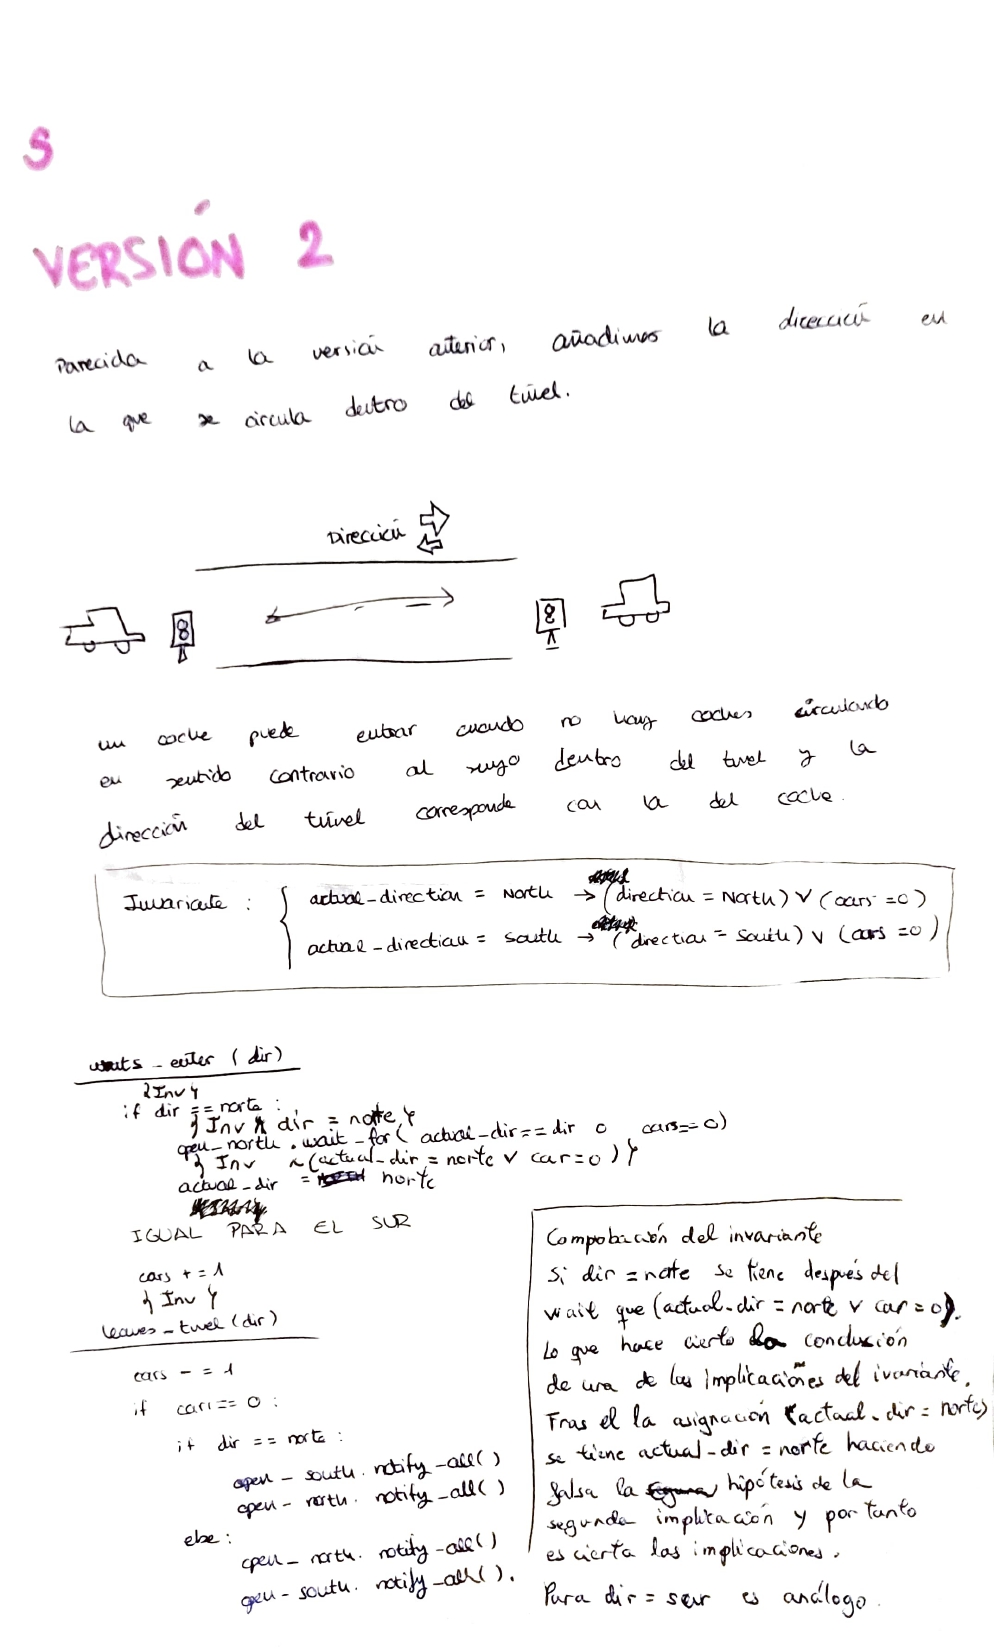 S
VERSIÓN 2
Parecida a la versión anterior, añadimos la dirección en
la que se circula dentro del túnel.
Dirección
un coche puede entrar cuando no hay coches circulando
en sentido contrario al suyo dentro del tunel y la
dirección del túnel corresponde con la del coche.
Invariante : { actual-direction = North → (direction = North) ∨ (cars = 0)
actual-direction = South → (direction = South) ∨ (cars = 0)
waits-enter (dir)
{Inv}
if dir == norte :
{ Inv ∧ dir = norte }
open_north.wait-for( actual-dir == dir o cars == 0)
{ Inv ∧ (actual-dir = norte ∨ car = 0) }
actual-dir = norte
IGUAL PARA EL SUR
cars += 1
{ Inv }
leaves-tunel (dir)
cars -= 1
if cars == 0 :
if dir == norte :
open-south.notify-all()
open-north.notify-all()
else :
open-north.notify-all()
open-south.notify-all().
Comprobación del invariante
Si dir = norte se tiene después del
wait que (actual-dir = norte ∨ car = 0).
Lo que hace cierto la conclusión
de una de las implicaciones del ivariante.
Tras el la asignación (actual-dir = norte)
se tiene actual-dir = norte haciendo
falsa la hipótesis de la
segunda implicación y por tanto
es cierta las implicaciones.
Para dir = sur es análogo.